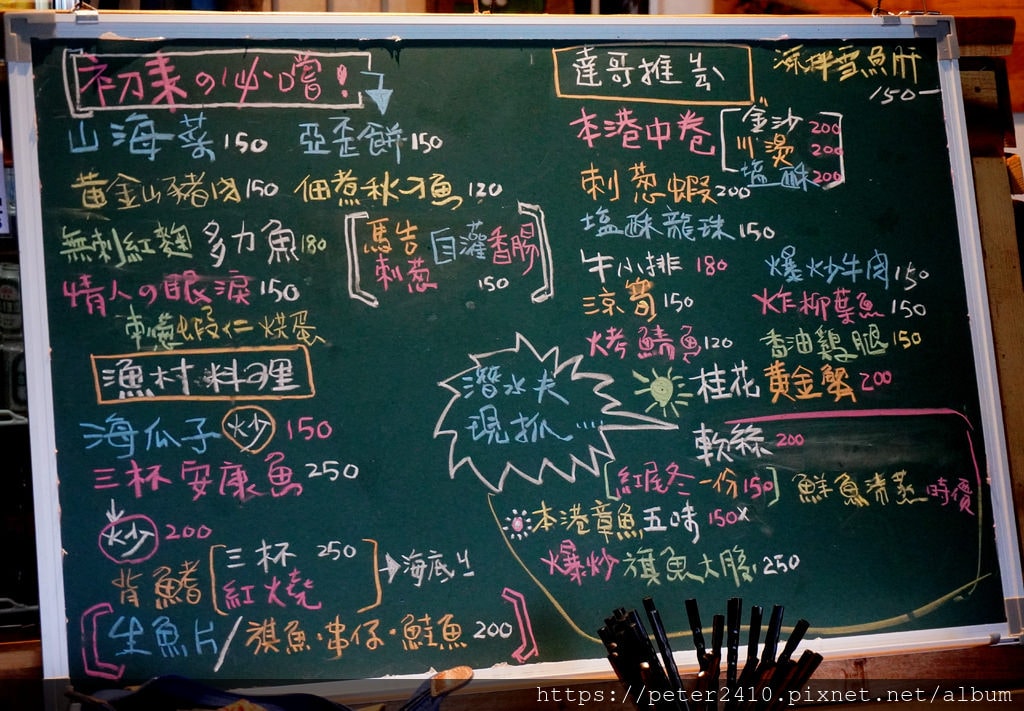 初素の必嚐!
山海菜150 亞歪餅150
黄金山豬肉150 佃煮秋刀魚120
無刺紅麴多力魚180
[馬告 刺葱 自灌香腸 150]
情人の眼淚150
刺葱蝦仁烘蛋
漁村料理
海瓜子炒150
三杯安康魚250
炒200
背鰭[三杯250 紅燒]→海底ㄐ
[生魚片/旗魚·串仔·鮭魚200]
達哥推芸
涼拌雪魚肝
150
本港中卷[金沙200
川燙200
塩酥200]
刺葱蝦200
塩酥龍珠150
牛小排180 爆炒牛肉150
涼筍150 炸柳葉魚150
烤鯖魚120 香油雞腿150
桂花黄金蟹200
潛水夫
現抓...
軟絲200
[紅尾冬一份150] 鮮魚清蒸時價
本港章魚五味150x
爆炒旗魚大腸250
https://peter2410.pixnet.net/album